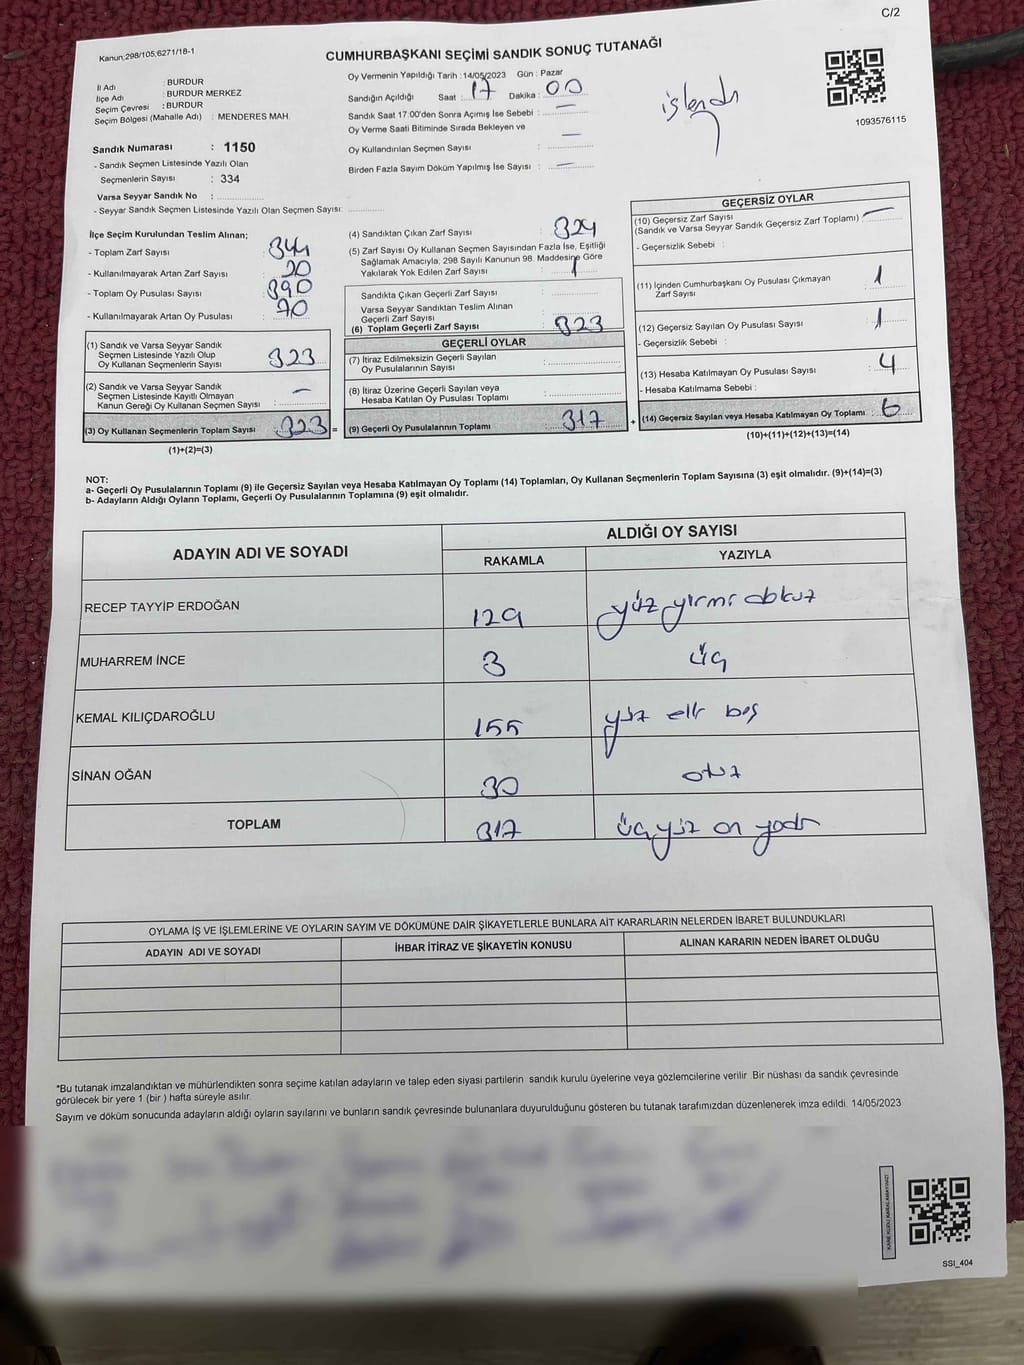 C/2
Kanun:298/105,6271/18-1
CUMHURBAŞKANI SEÇİMİ SANDIK SONUÇ TUTANAĞI
İl Adı : BURDUR
İlçe Adı : BURDUR MERKEZ
Seçim Çevresi : BURDUR
Seçim Bölgesi (Mahalle Adı) : MENDERES MAH.
Sandık Numarası : 1150
- Sandık Seçmen Listesinde Yazılı Olan
Seçmenlerin Sayısı : 334
Varsa Seyyar Sandık No :
- Seyyar Sandık Seçmen Listesinde Yazılı Olan Seçmen Sayısı:
Oy Vermenin Yapıldığı Tarih :14/05/2023 Gün : Pazar
Sandığın Açıldığı Saat : 17 Dakika : 00
Sandık Saat 17:00'den Sonra Açımış İse Sebebi : —
Oy Verme Saati Bitiminde Sırada Bekleyen ve
Oy Kullandırılan Seçmen Sayısı : —
Birden Fazla Sayım Döküm Yapılmış İse Sayısı : —
işlendi
1093576115
İlçe Seçim Kurulundan Teslim Alınan;
- Toplam Zarf Sayısı : 344
- Kullanılmayarak Artan Zarf Sayısı : 20
- Toplam Oy Pusulası Sayısı : 390
- Kullanılmayarak Artan Oy Pusulası : 70
(1) Sandık ve Varsa Seyyar Sandık
Seçmen Listesinde Yazılı Olup
Oy Kullanan Seçmenlerin Sayısı : 323
(2) Sandık ve Varsa Seyyar Sandık
Seçmen Listesinde Kayıtlı Olmayan
Kanun Gereği Oy Kullanan Seçmen Sayısı : —
(3) Oy Kullanan Seçmenlerin Toplam Sayısı : 323 =
(1)+(2)=(3)
(4) Sandıktan Çıkan Zarf Sayısı : 324
(5) Zarf Sayısı Oy Kullanan Seçmen Sayısından Fazla İse, Eşitliği
Sağlamak Amacıyla, 298 Sayılı Kanunun 98. Maddesine Göre
Yakılarak Yok Edilen Zarf Sayısı : 1
Sandıkta Çıkan Geçerli Zarf Sayısı :
Varsa Seyyar Sandıktan Teslim Alınan
Geçerli Zarf Sayısı :
(6) Toplam Geçerli Zarf Sayısı : 323
GEÇERLİ OYLAR
(7) İtiraz Edilmeksizin Geçerli Sayılan
Oy Pusulasının Sayısı :
(8) İtiraz Üzerine Geçerli Sayılan veya
Hesaba Katılan Oy Pusulası Toplamı :
(9) Geçerli Oy Pusulalarının Toplamı : 317 +
GEÇERSİZ OYLAR
(10) Geçersiz Zarf Sayısı
(Sandık ve Varsa Seyyar Sandık Geçersiz Zarf Toplamı) : —
- Geçersizlik Sebebi :
(11) İçinden Cumhurbaşkanı Oy Pusulası Çıkmayan
Zarf Sayısı : 1
(12) Geçersiz Sayılan Oy Pusulası Sayısı : 1
- Geçersizlik Sebebi :
(13) Hesaba Katılmayan Oy Pusulası Sayısı : 4
- Hesaba Katılmama Sebebi :
(14) Geçersiz Sayılan veya Hesaba Katılmayan Oy Toplamı : 6
(10)+(11)+(12)+(13)=(14)
NOT:
a- Geçerli Oy Pusulalarının Toplamı (9) ile Geçersiz Sayılan veya Hesaba Katılmayan Oy Toplamı (14) Toplamları, Oy Kullanan Seçmenlerin Toplam Sayısına (3) eşit olmalıdır. (9)+(14)=(3)
b- Adayların Aldığı Oyların Toplamı, Geçerli Oy Pusulalarının Toplamına (9) eşit olmalıdır.
ADAYIN ADI VE SOYADI
ALDIĞI OY SAYISI
RAKAMLA YAZIYLA
RECEP TAYYİP ERDOĞAN 129 yüz yirmi dokuz
MUHARREM İNCE 3 üç
KEMAL KILIÇDAROĞLU 155 yüz elli beş
SİNAN OĞAN 30 otuz
TOPLAM 317 üçyüz on yedi
OYLAMA İŞ VE İŞLEMLERİNE VE OYLARIN SAYIM VE DÖKÜMÜNE DAİR ŞİKAYETLERLE BUNLARA AİT KARARLARIN NELERDEN İBARET BULUNDUKLARI
ADAYIN ADI VE SOYADI İHBAR İTİRAZ VE ŞİKAYETİN KONUSU ALINAN KARARIN NEDEN İBARET OLDUĞU
*Bu tutanak imzalandıktan ve mühürlendikten sonra seçime katılan adayların ve talep eden siyasi partilerin sandık kurulu üyelerine veya gözlemcilerine verilir .Bir nüshası da sandık çevresinde
görülecek bir yere 1 (bir ) hafta süreyle asılır.
Sayım ve döküm sonucunda adayların aldığı oyların sayılarını ve bunların sandık çevresinde bulunanlara duyurulduğunu gösteren bu tutanak tarafımızdan düzenlenerek imza edildi. 14/05/2023
KARE KODU KARALAMAYINIZ!
SSI_404